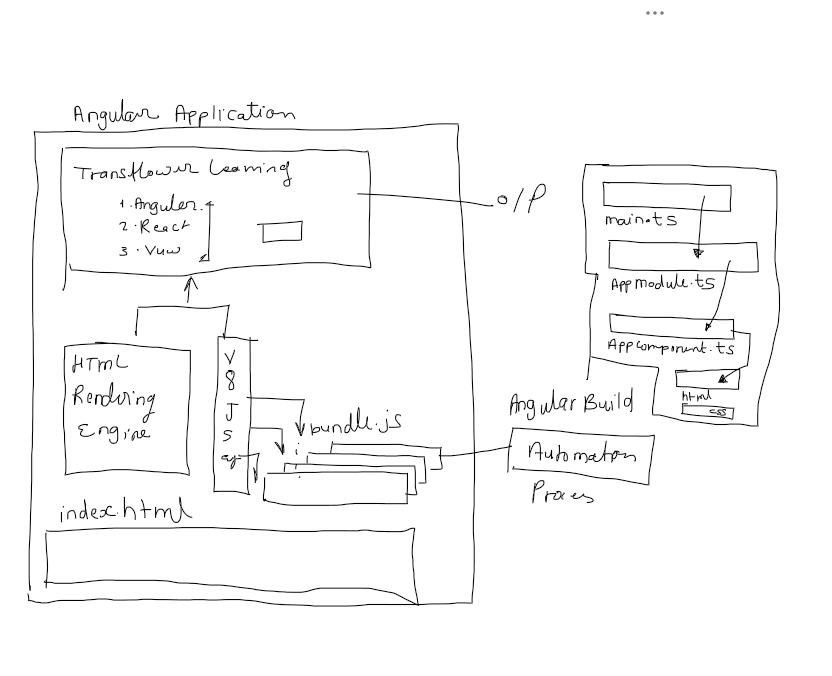 Angular Application
Transflower Learning
1. Angular
2. React
3. Vuw
O/P
HTML
Rendering
Engine
V
8
J
S
bundle.js
index.html
main.ts
Appmodule.ts
Appcomponent.ts
html
css
Angular Build
Automation